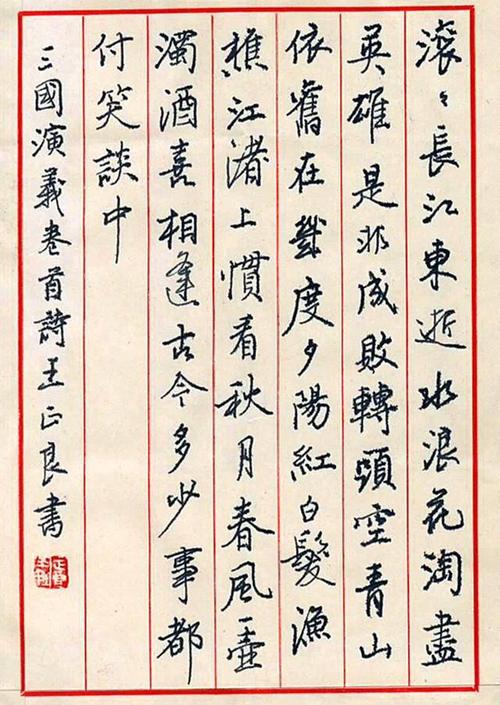 滚々長江東逝水浪花淘盡
英雄是非成敗轉頭空青山
依舊在幾度夕陽紅白髮漁
樵江渚上慣看秋月春風一壺
濁酒喜相逢古今多少事都
付笑談中
三國演義卷首詩王正良書